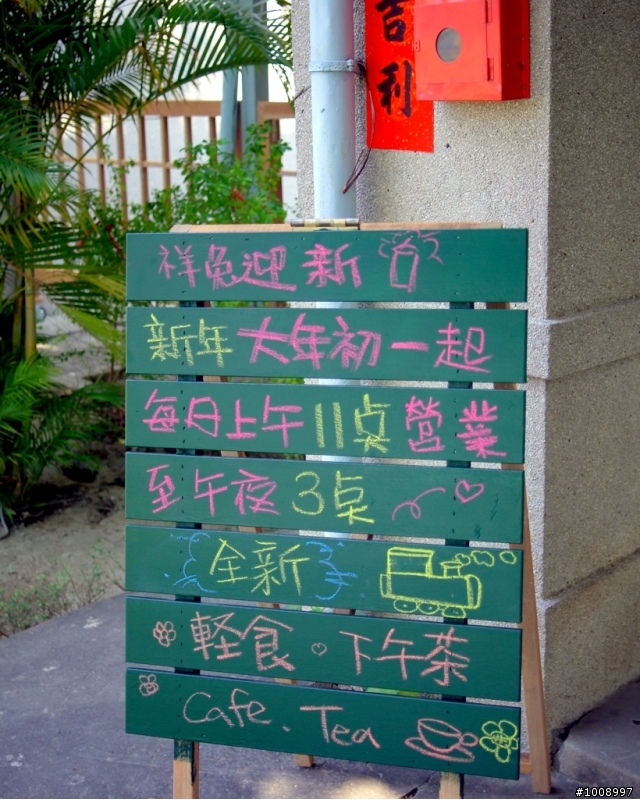 吉利
祥兔迎新
新年大年初一起
每日上午11奌營業
至午夜3奌
全新
軽食。下午茶
Cafe. Tea
#1008997